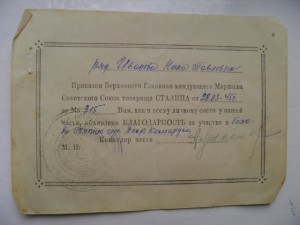 ряд. Иванова Нина Павловна
Приказом Верховного Главнокомандующего Маршала
Советского Союза товарища СТАЛИНА от 28.03.45г.
за № 315 Вам, как и всему личному составу нашей
части, объявлена БЛАГОДАРНОСТЬ за участие в
Командир части
М. П.